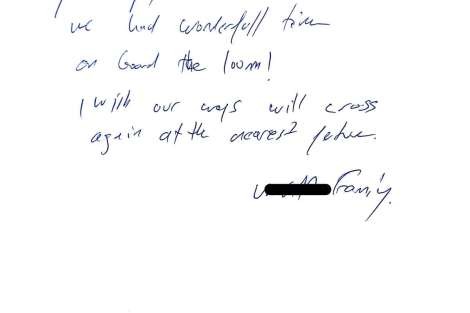 we had wonderfull time
on board the loom!
I wish our ways will cross
again at the nearest future.
Family.